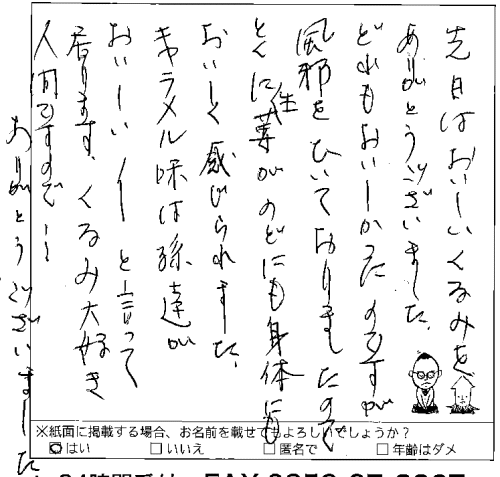 先日はおいしいくるみを
ありがとうございました。
どれもおいしかったのですが
風邪をひいておりましたので
とくに生姜がのどにも身体にも
おいしく感じられました。
キャラメル味は孫達が
おいしいおいしいと言って
居ります。くるみ大好き
人間ですので〜
ありがとうございました
※紙面に掲載する場合、お名前を載せてもよろしいでしょうか?
はい □いいえ □匿名で □年齢はダメ